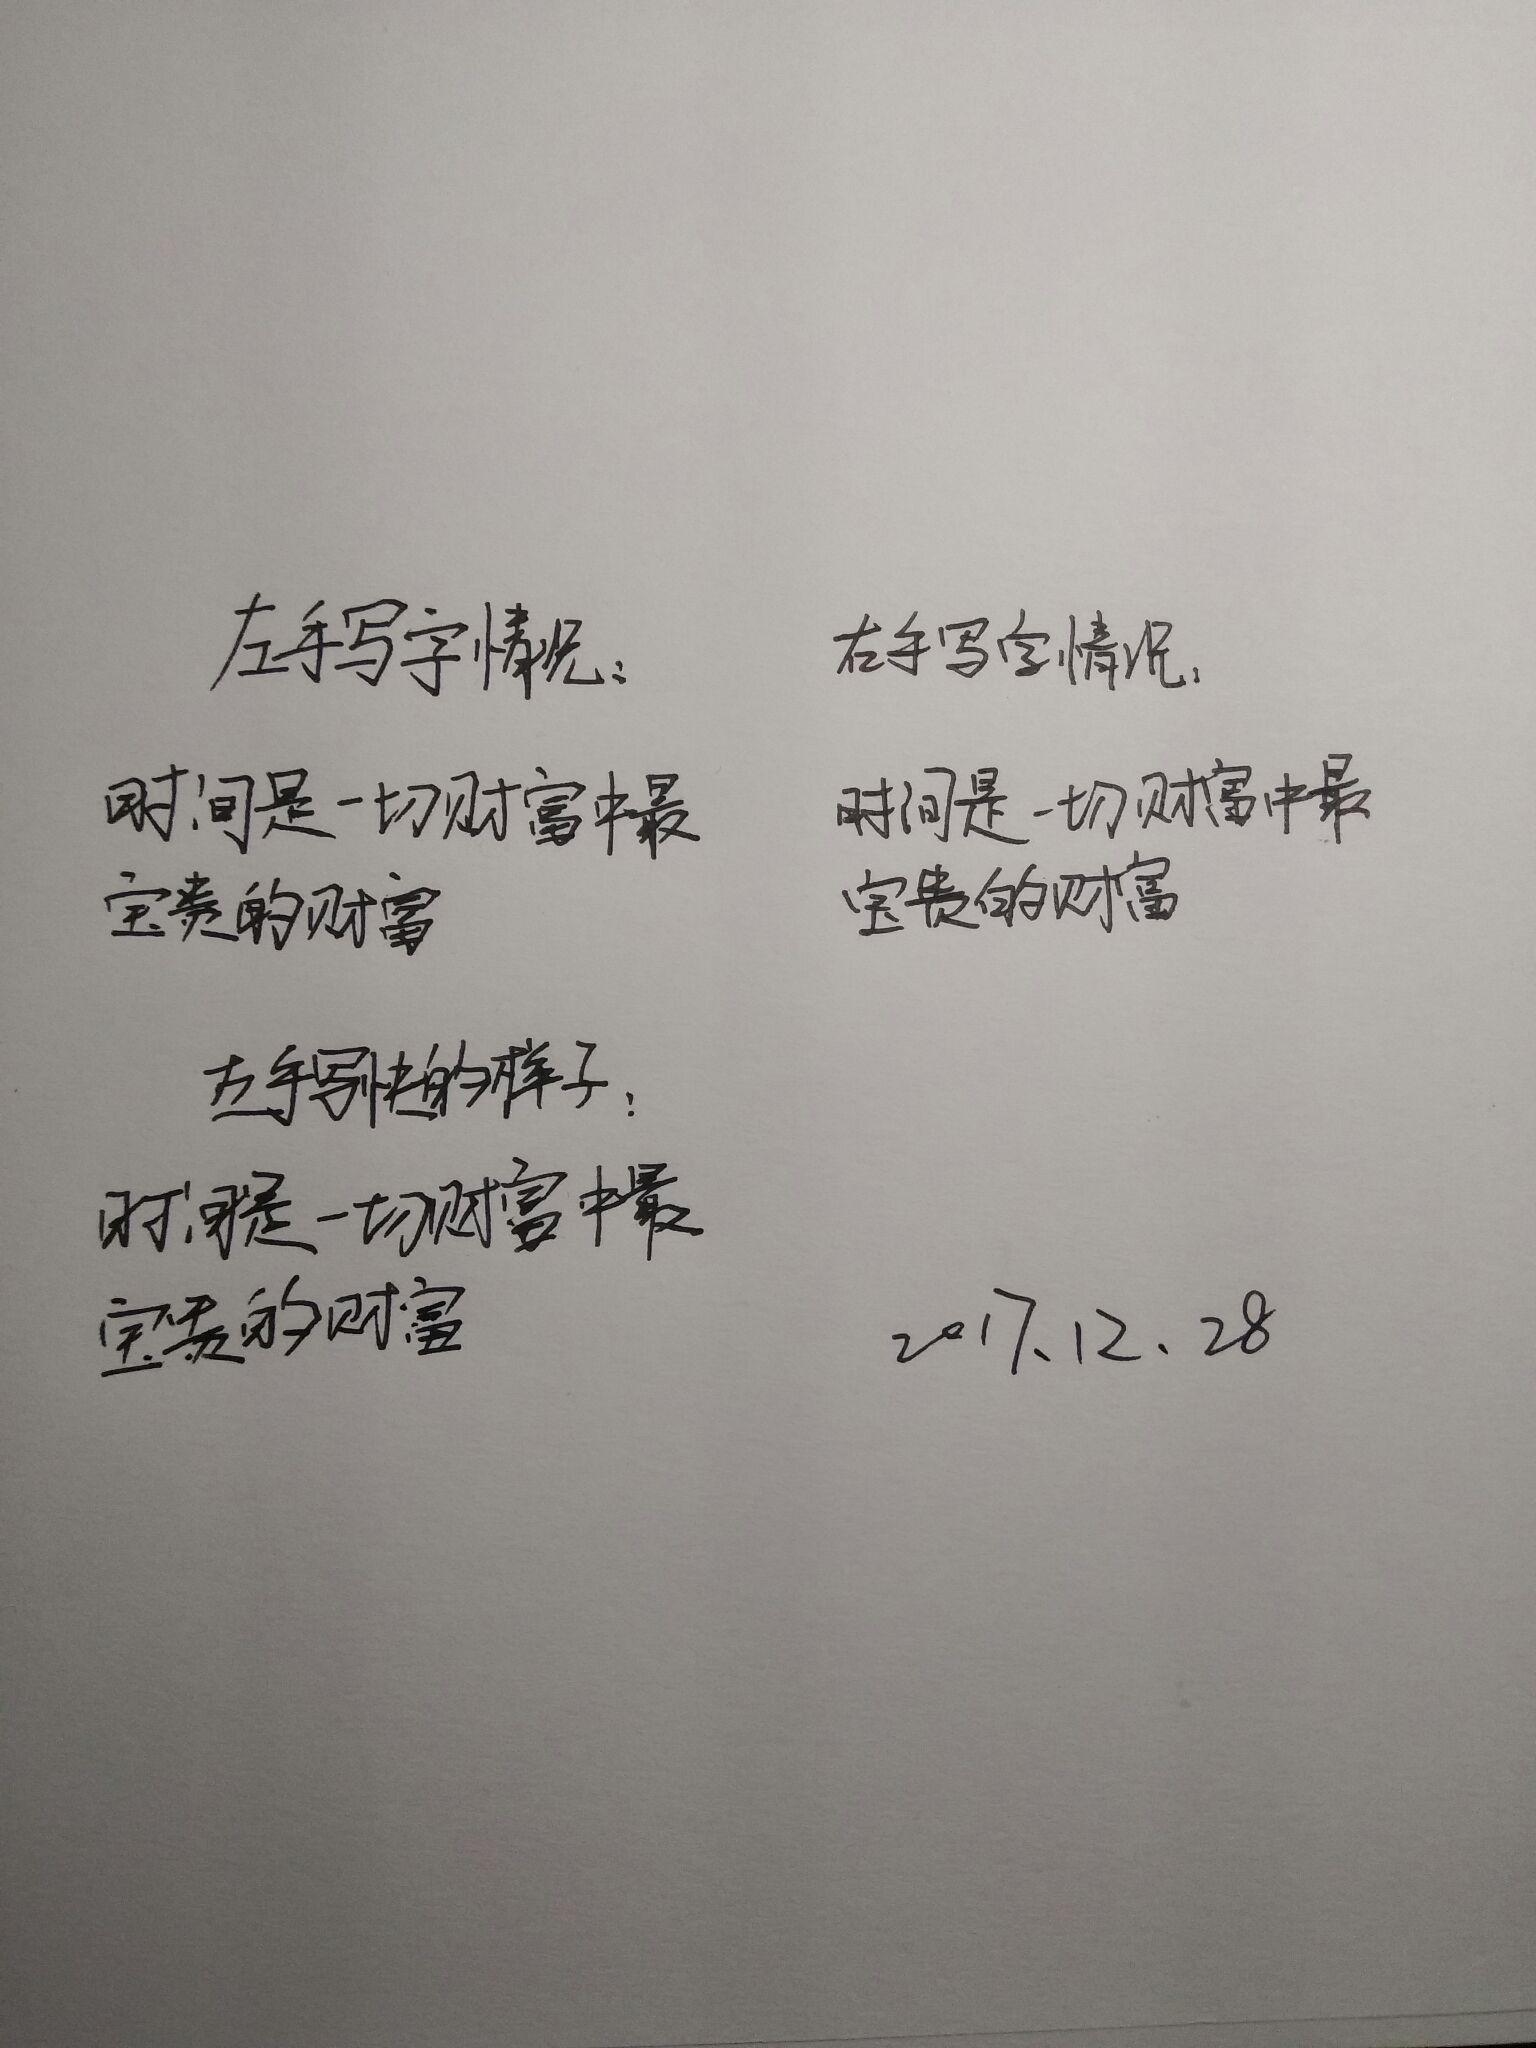 左手写字情况：
时间是一切财富中最
宝贵的财富
右手写字情况：
时间是一切财富中最
宝贵的财富
左手写快的样子：
时间是一切财富中最
宝贵的财富
2017.12.28